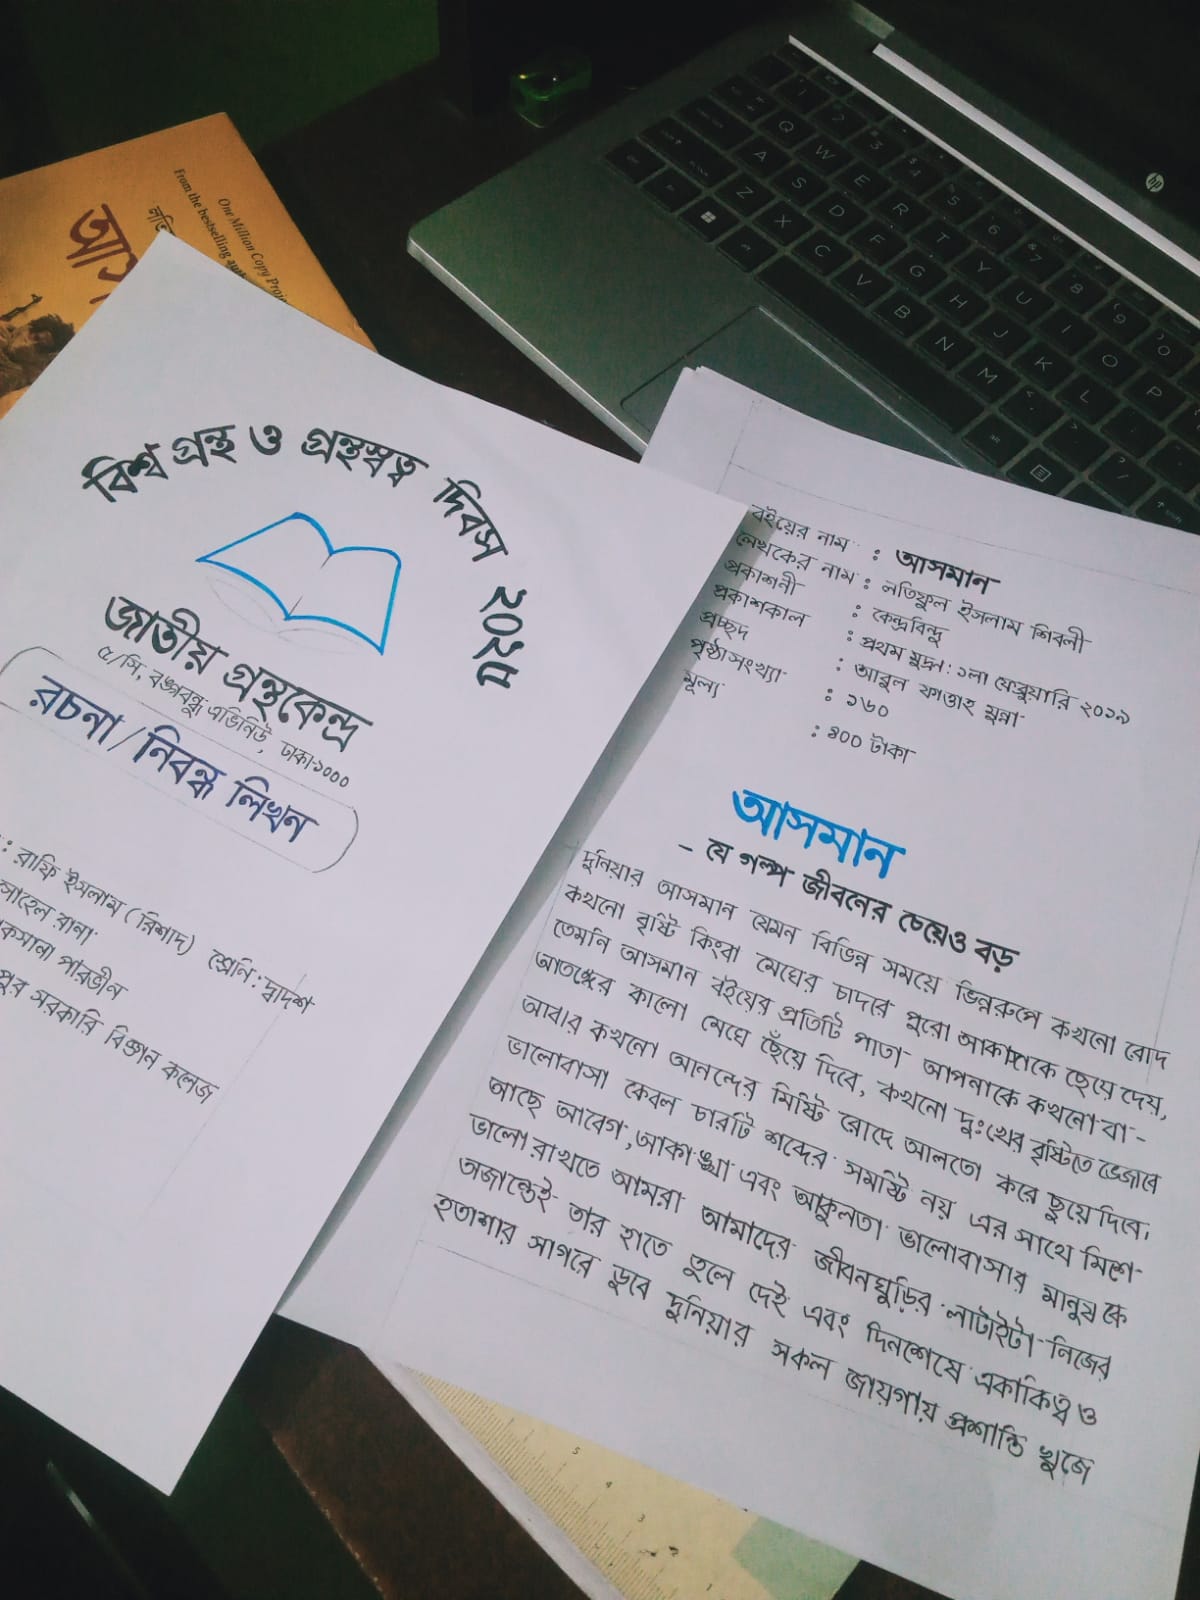 One Million Copy Proje
From the bestselling auth
আস
বিশ্ব গ্রন্থ ও গ্রন্থস্বত্ব দিবস ২০২৫
জাতীয় গ্রন্থকেন্দ্র
৫/সি, বঙ্গবন্ধু এভিনিউ, ঢাকা-১০০০
রচনা / নিবন্ধ লিখন
: রাফি ইসলাম (রিশাদ) শ্রেণি: দ্বাদশ
সোহেল রানা
কসানা পারভীন
পুর সরকারি বিজ্ঞান কলেজ
বইয়ের নাম : আসমান
লেখকের নাম : লতিফুল ইসলাম শিবলী
প্রকাশনী : কেন্দ্রবিন্দু
প্রকাশকাল : প্রথম মুদ্রণ: ১লা ফেব্রুয়ারি ২০১৯
প্রচ্ছদ : আবুল ফাত্তাহ মুন্না
পৃষ্ঠাসংখ্যা : ১৬০
মূল্য : ৪০০ টাকা
আসমান
- যে গল্প জীবনের চেয়েও বড়
দুনিয়ার আসমান যেমন বিভিন্ন সময়ে ভিন্নরূপে কখনো রোদ
কখনো বৃষ্টি কিংবা মেঘের চাদরে পুরো আকাশকে ছেয়ে দেয়,
তেমনি আসমান বইয়ের প্রতিটি পাতা আপনাকে কখনো বা-
আতঙ্কের কালো মেঘে ছেঁয়ে দিবে, কখনো দুঃখের বৃষ্টিতে ভেজাবে
আবার কখনো আনন্দের মিষ্টি রোদে আলতো করে ছুয়ে দিবে।
ভালোবাসা কেবল চারটি শব্দের সমষ্টি নয় এর সাথে মিশে-
আছে আবেগ, আকাঙ্খা এবং আকুলতা। ভালোবাসার মানুষকে
ভালো রাখতে আমরা আমাদের জীবনঘুড়ির লাটাইটা নিজের
অজান্তেই তার হাতে তুলে দেই এবং দিনশেষে একাকিত্ব ও
হতাশার সাগরে ডুবে দুনিয়ার সকল জায়গায় প্রশান্তি খুজে